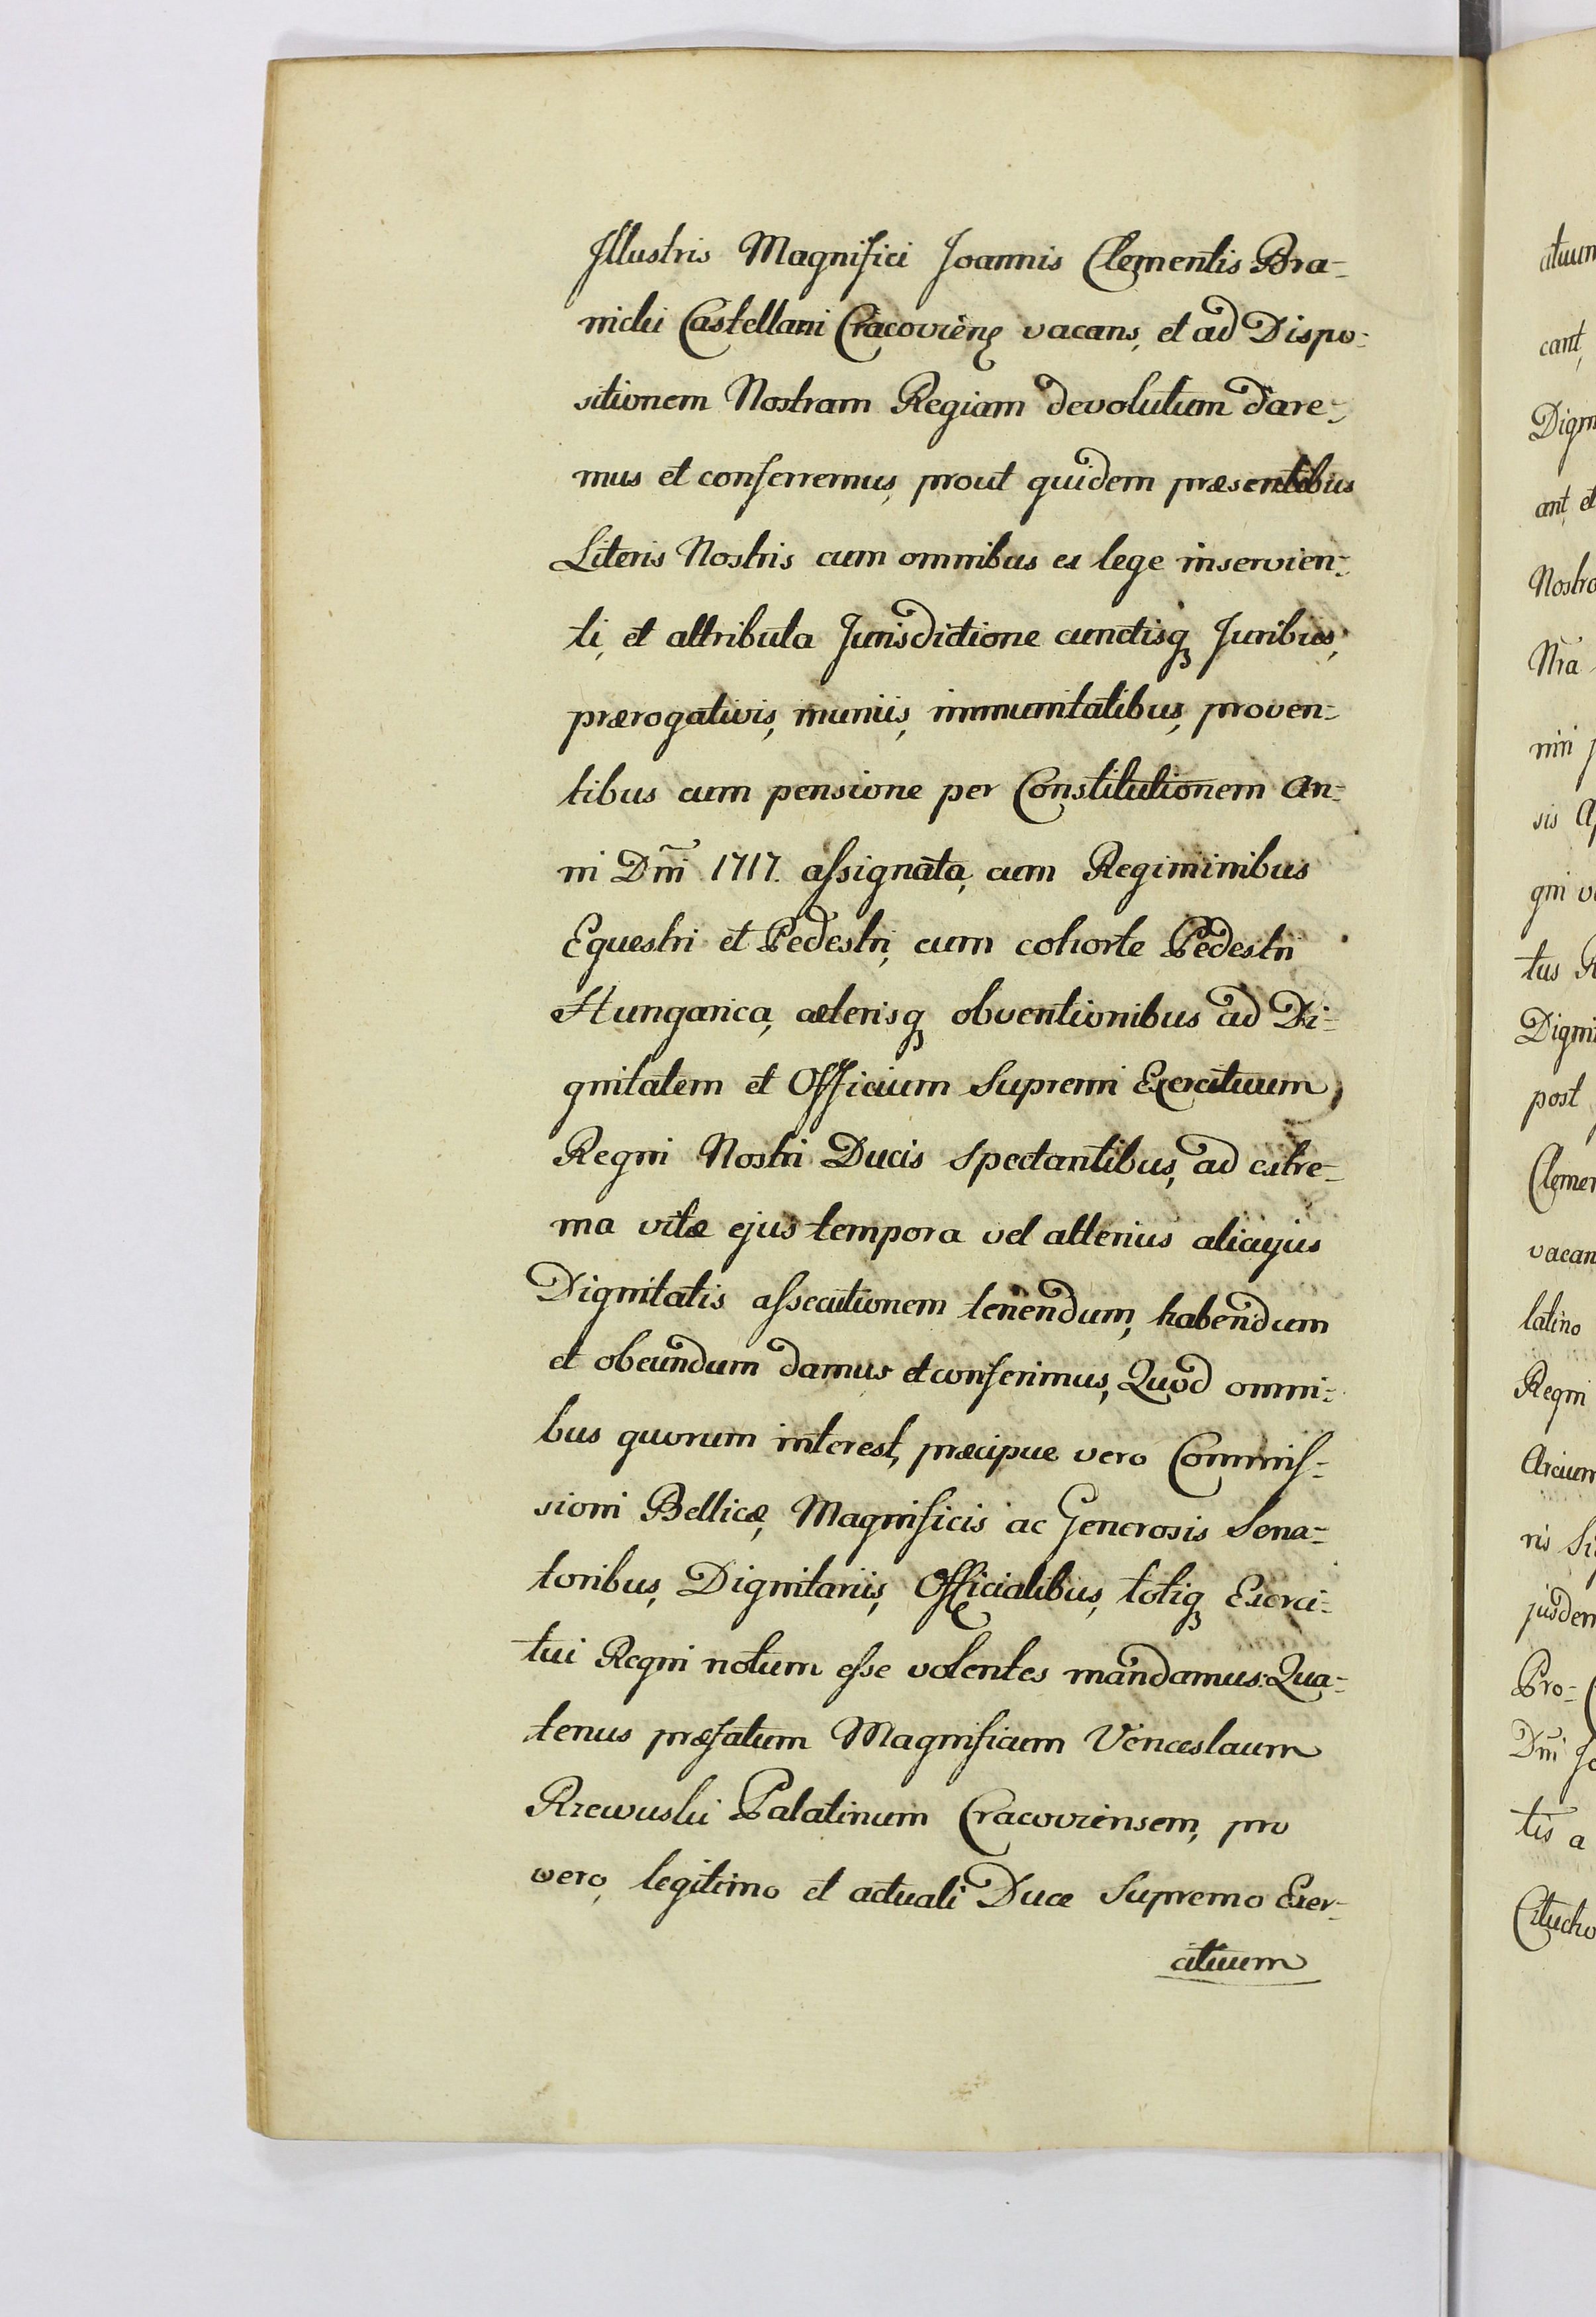 Illustris Magnifici Joannis Clementis Bra-
nicki Castellani Cracovien̄ę vacans, et ad Dispo-
sitionem Nostram Regiam devolutum dare-
mus et conferremus, prout quidem præsentibus
Literis Nostris cum omnibus ex lege inservien-
ti, et attributa Jurisdictione cunctisq3 Juribus,
prærogativis, muniis, immunitatibus, proven-
tibus cum pensione per Constitutionem An-
ni Dn̄i 1717. assignata, cum Regiminibus
Equestri et Pedestri, cum cohorte Pedestri
Hungarica, cæterisq3 obventionibus ad Di-
gnitatem et Officium Supremi Exercituum
Regni Nostri Ducis spectantibus, ad extre-
ma vitæ ejus tempora vel alterius alicujus
Dignitatis assecutionem tenendum, habendum
et obeundum damus et conferimus, Quod omni-
bus quorum interest, præcipue vero Commis-
sioni Bellicæ, Magnificis ac Generosis Sena-
toribus, Dignitariis, Officialibus, totiq3 Exerci-
tui Regni notum esse volentes mandamus: Qua-
tenus præfatum Magnificum Venceslaum
Rzewuski Palatinum Cracoviensem, pro
vero, legitimo et actuali Duce Supremo Exer-
cituum
cituum
cant,
ant, et
Nostro
Nr̄a
niri
sis
gni
tus
post
Clemen
vacan
latino
Regni
Arcium
ris
jusdem
Pro-
Dn̄i Jo
tis a